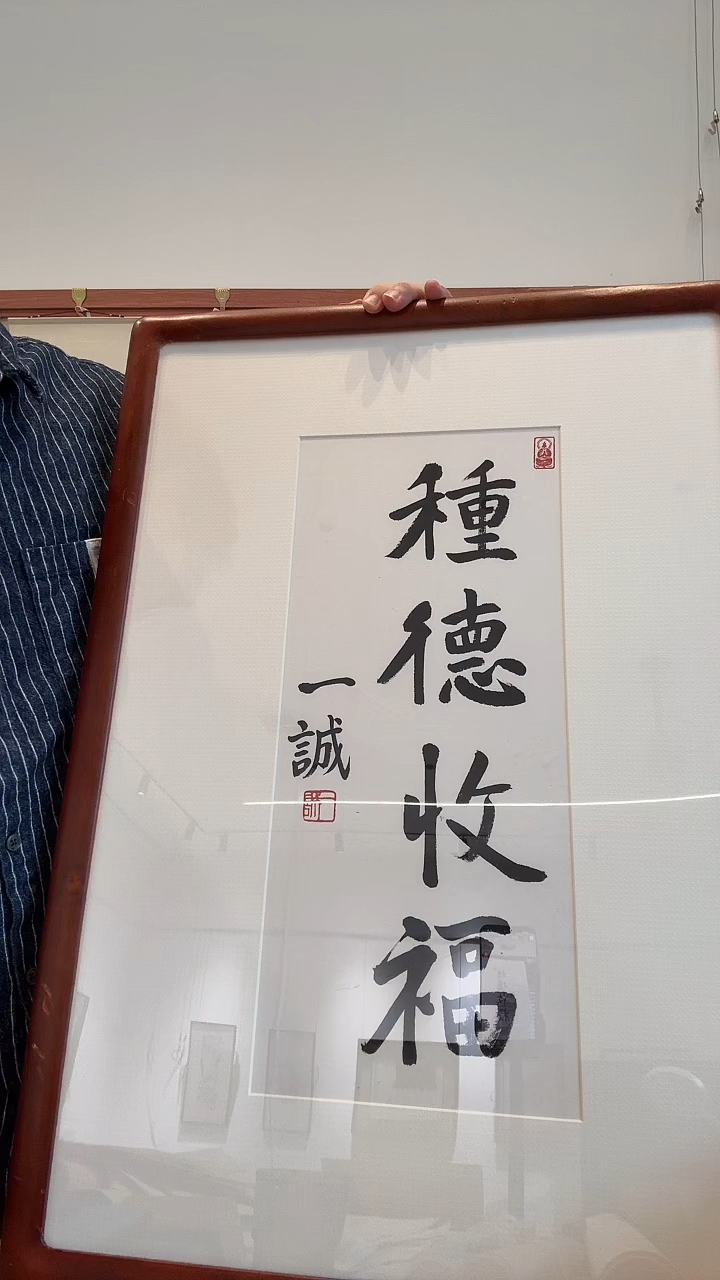 種德收福
一誠